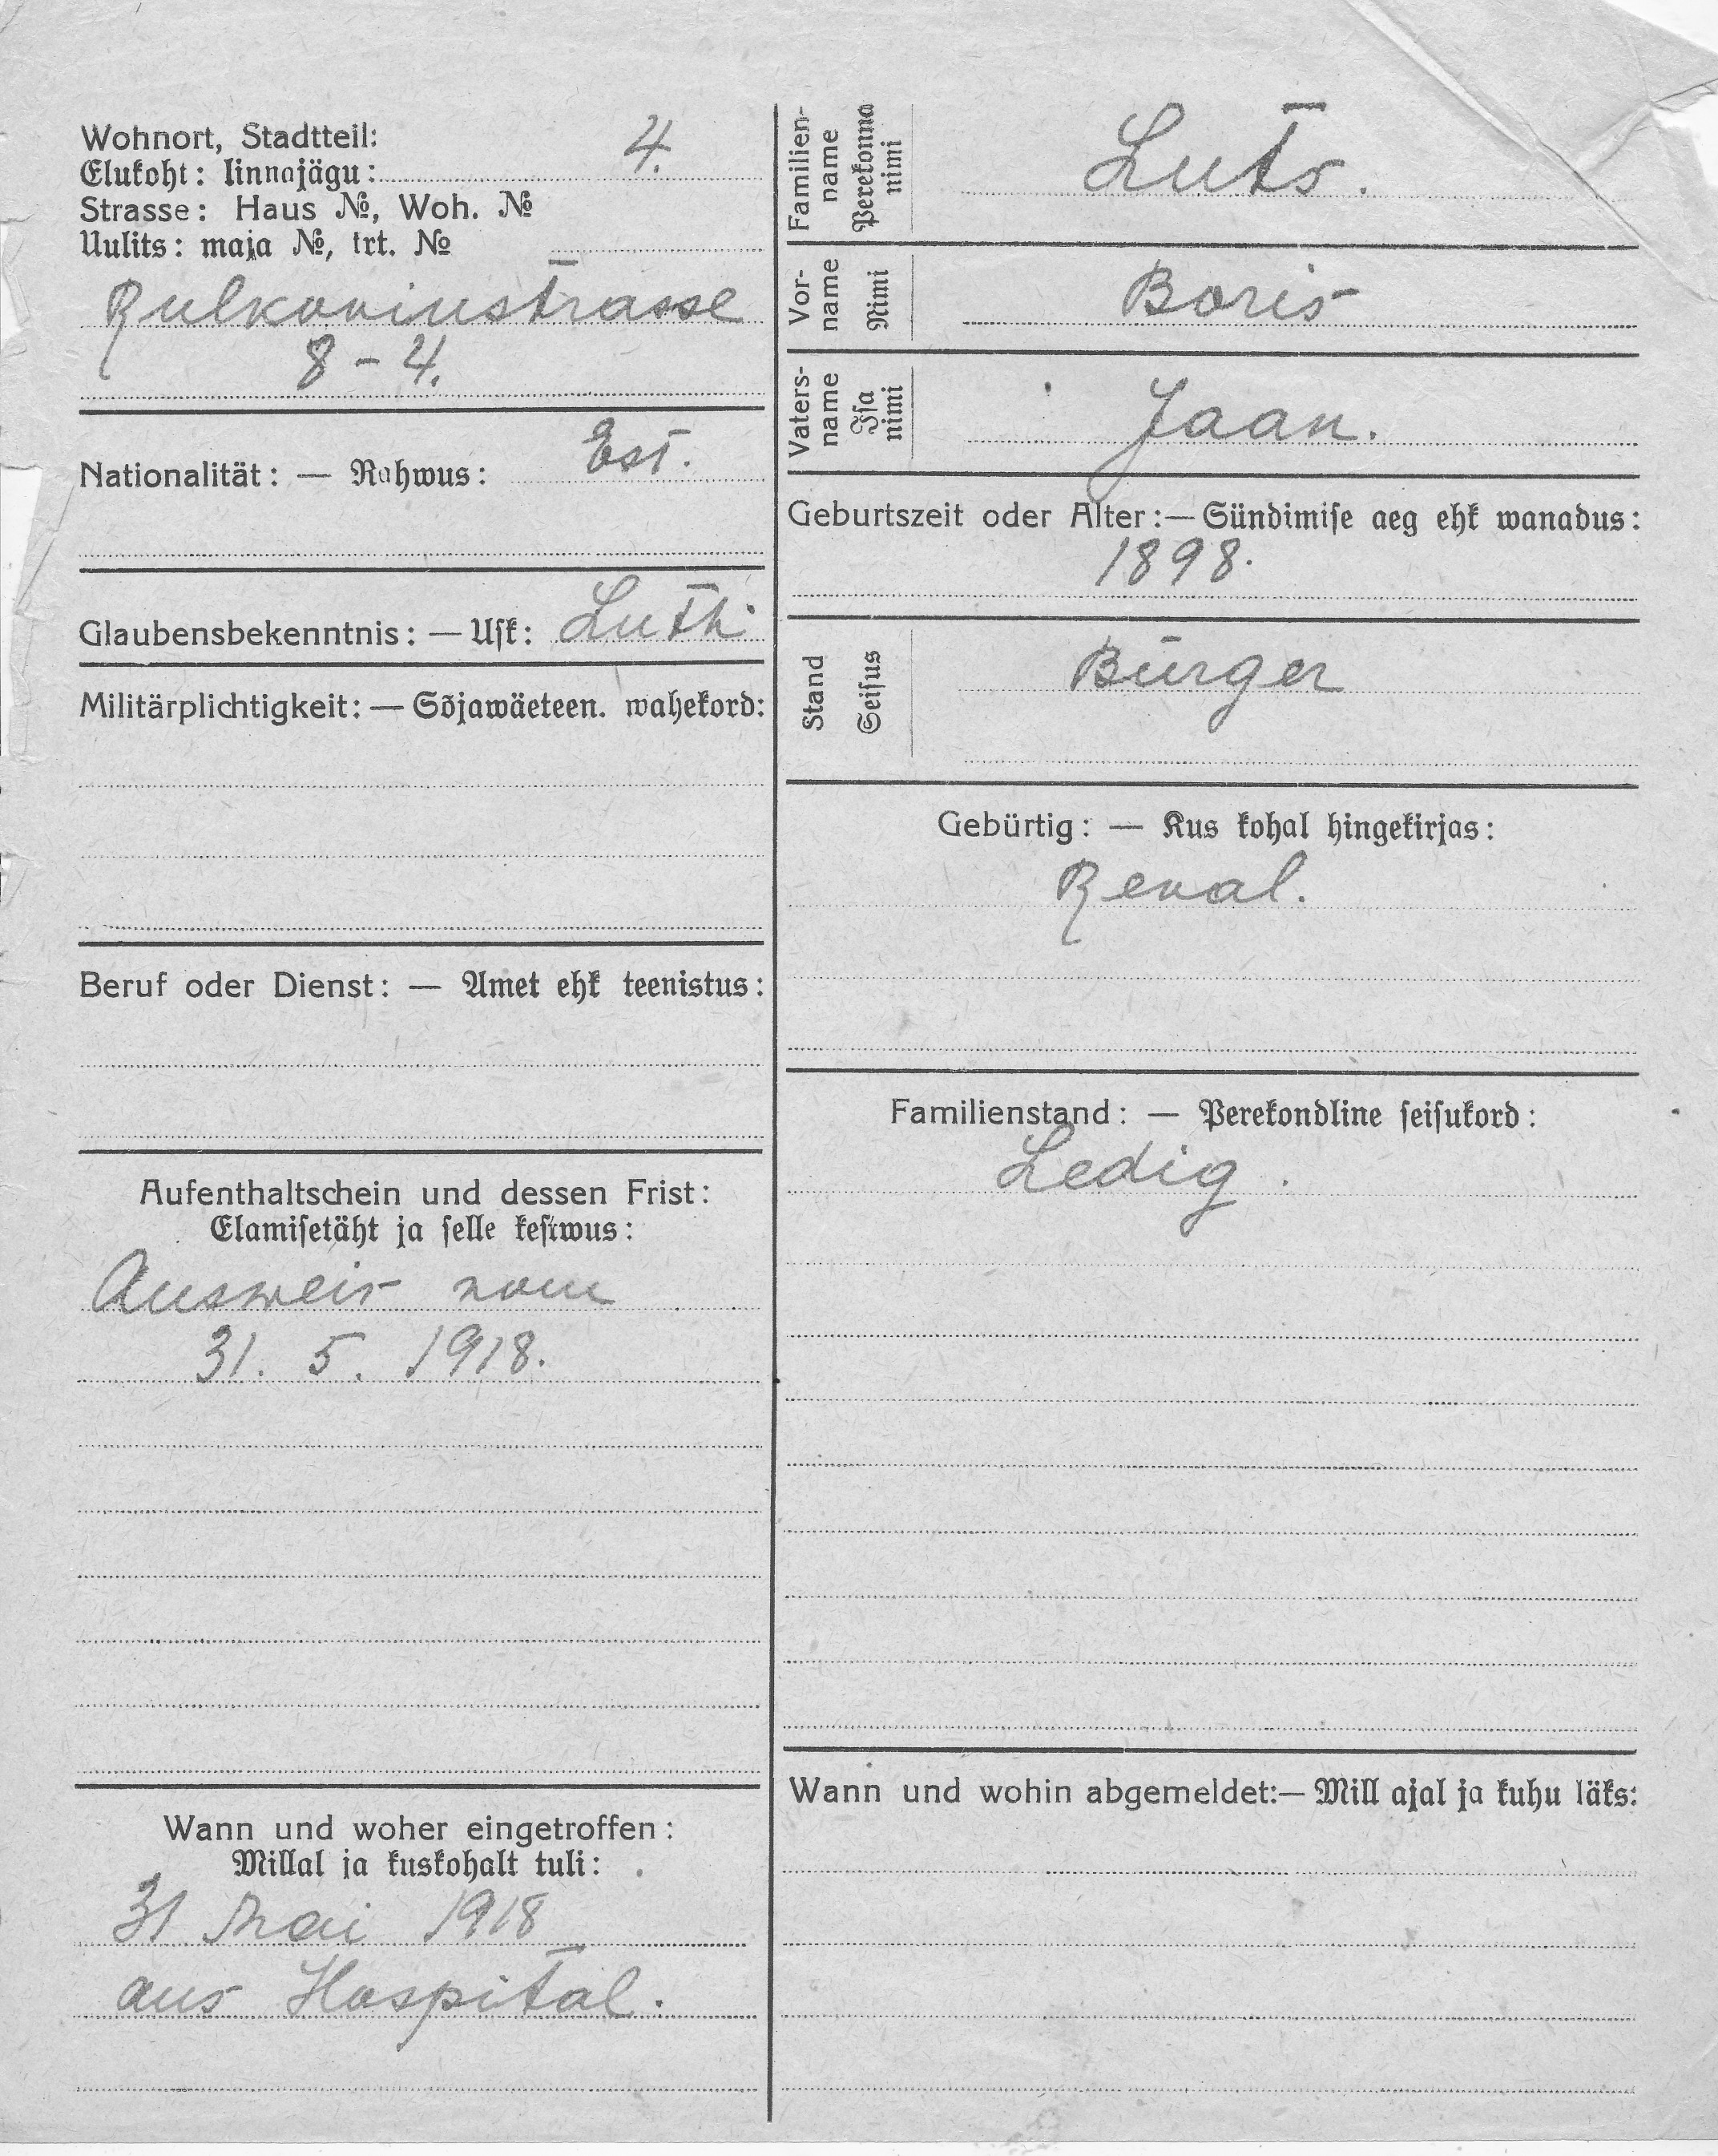 Wohnort, Stadtteil:
Elukoht: linnajägu: 4.
Strasse: Haus №, Woh. №
Uulits: maja №, krt. №
8 – 4.
Nationalität: — Rahwus: Est.
Glaubensbekenntnis: — Usk: Luth.
Militärplichtigkeit: — Sõjawäeteen. wahekord:
Beruf oder Dienst: — Amet ehk teenistus:
Aufenthaltschein und dessen Frist:
Elamisetäht ja selle kestwus:
Ausweis vom
31. 5. 1918.
Wann und woher eingetroffen:
Millal ja kuskohalt tuli:
31 Mai 1918
aus Hospital.
Familien-
name
Perekonna
nimi
Luts.
Vor-
name
Nimi
Boris
Vaters-
name
Isa
nimi
Jaan.
Geburtszeit oder Alter: — Sündimise aeg ehk wanadus:
1898.
Stand
Seisus
Bürger
Gebürtig: — Kus kohal hingekirjas:
Reval.
Familienstand: — Perekondline seisukord:
Ledig.
Wann und wohin abgemeldet: — Mill ajal ja kuhu läks: